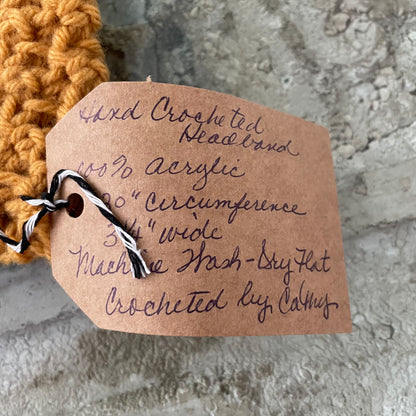 Hand Crocheted
Headband
100% Acrylic
20" Circumference
wide
Machine Wash - Dry Flat
Crocheted by Cathy